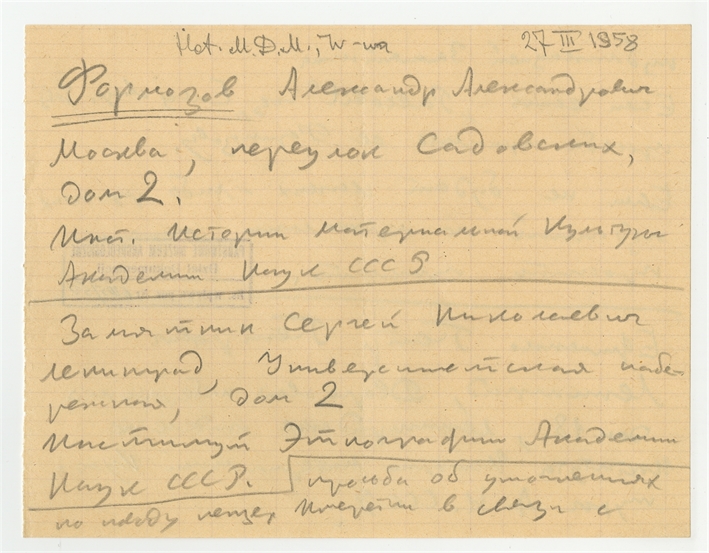 Not. M.D.M., W-wa 27 III 1958
Формозов Александр Александрович
Москва, переулок Садовских,
дом 2.
Инст. Истории материальной Культуры
Академии Наук СССР
Замятнин Сергей Николаевич
Ленинград, Университетская набе-
режная, дом 2
Институт Этнографии Академии
Наук СССР. просьба об уточнениях
по поводу пещер Имеретии в связи с